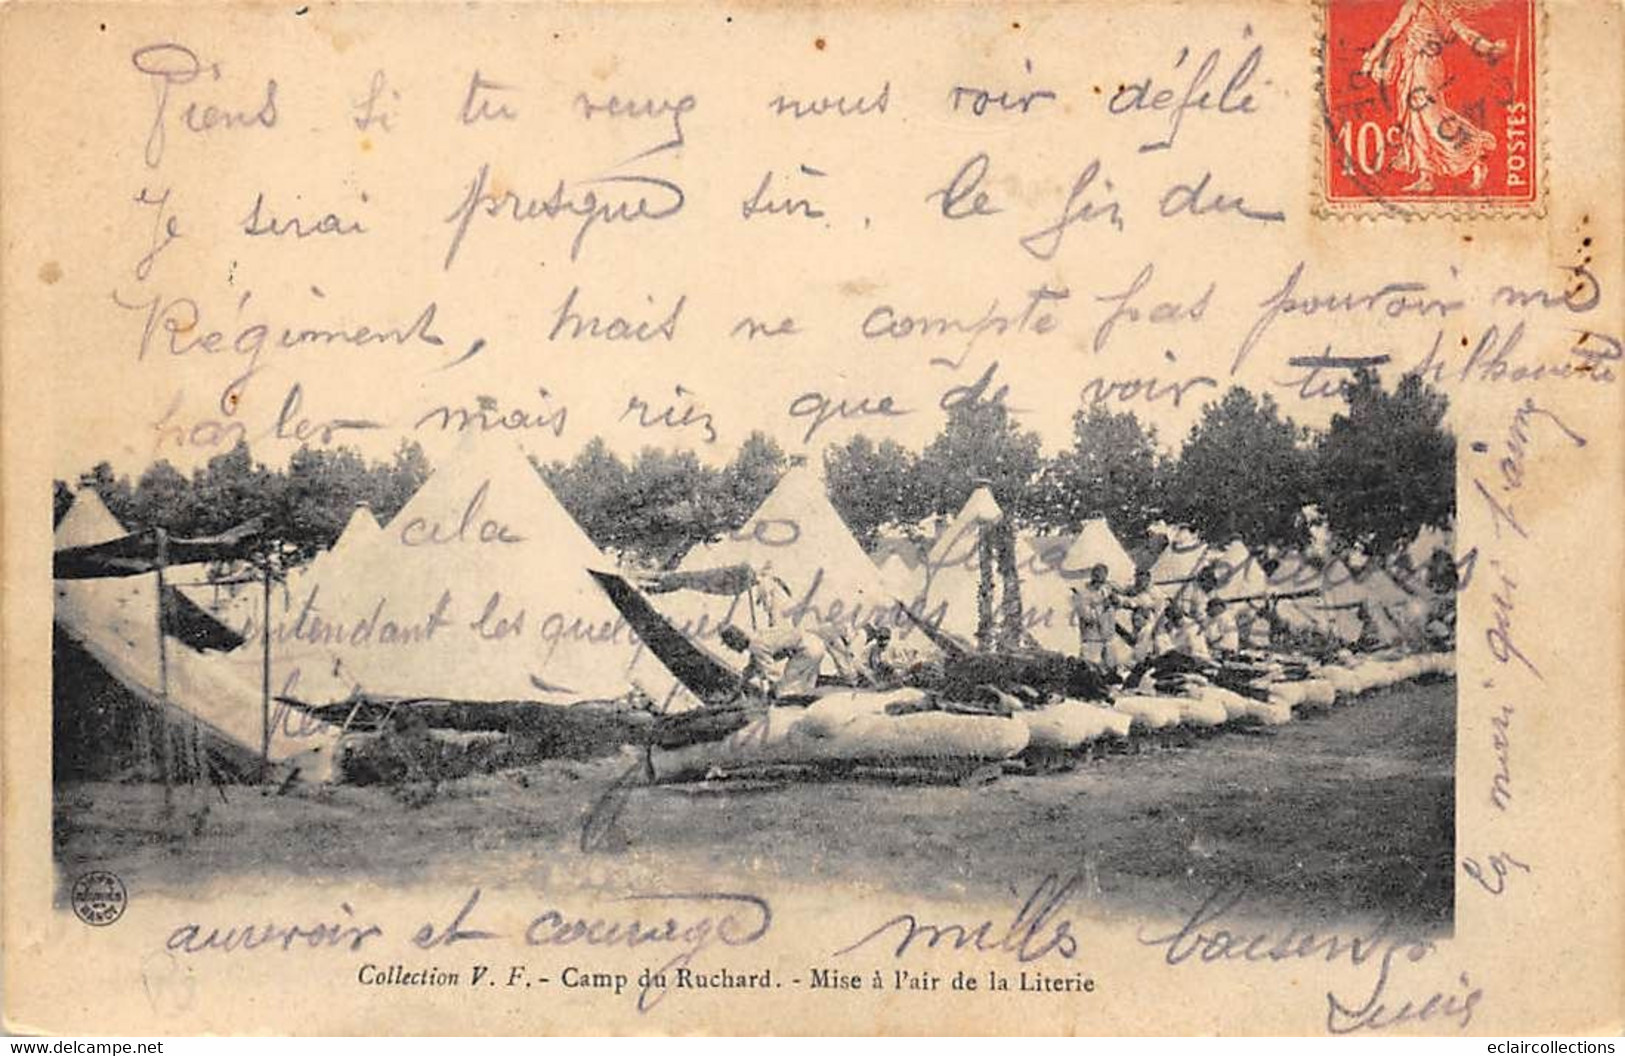 Piens si tu veux nous voir défilé
Je serai presque sûr. le fin du
Régiment, mais ne compte pas pouvoir me
parler mais riez que de voir ta silhouette
cela
entendant les quelques heures
aurevoir et courage mills baisers
ton mari qui t'aime
10c
POSTES
NANCY
Collection V. F. - Camp du Ruchard. - Mise à l'air de la Literie
www.delcampe.net
eclaircollections